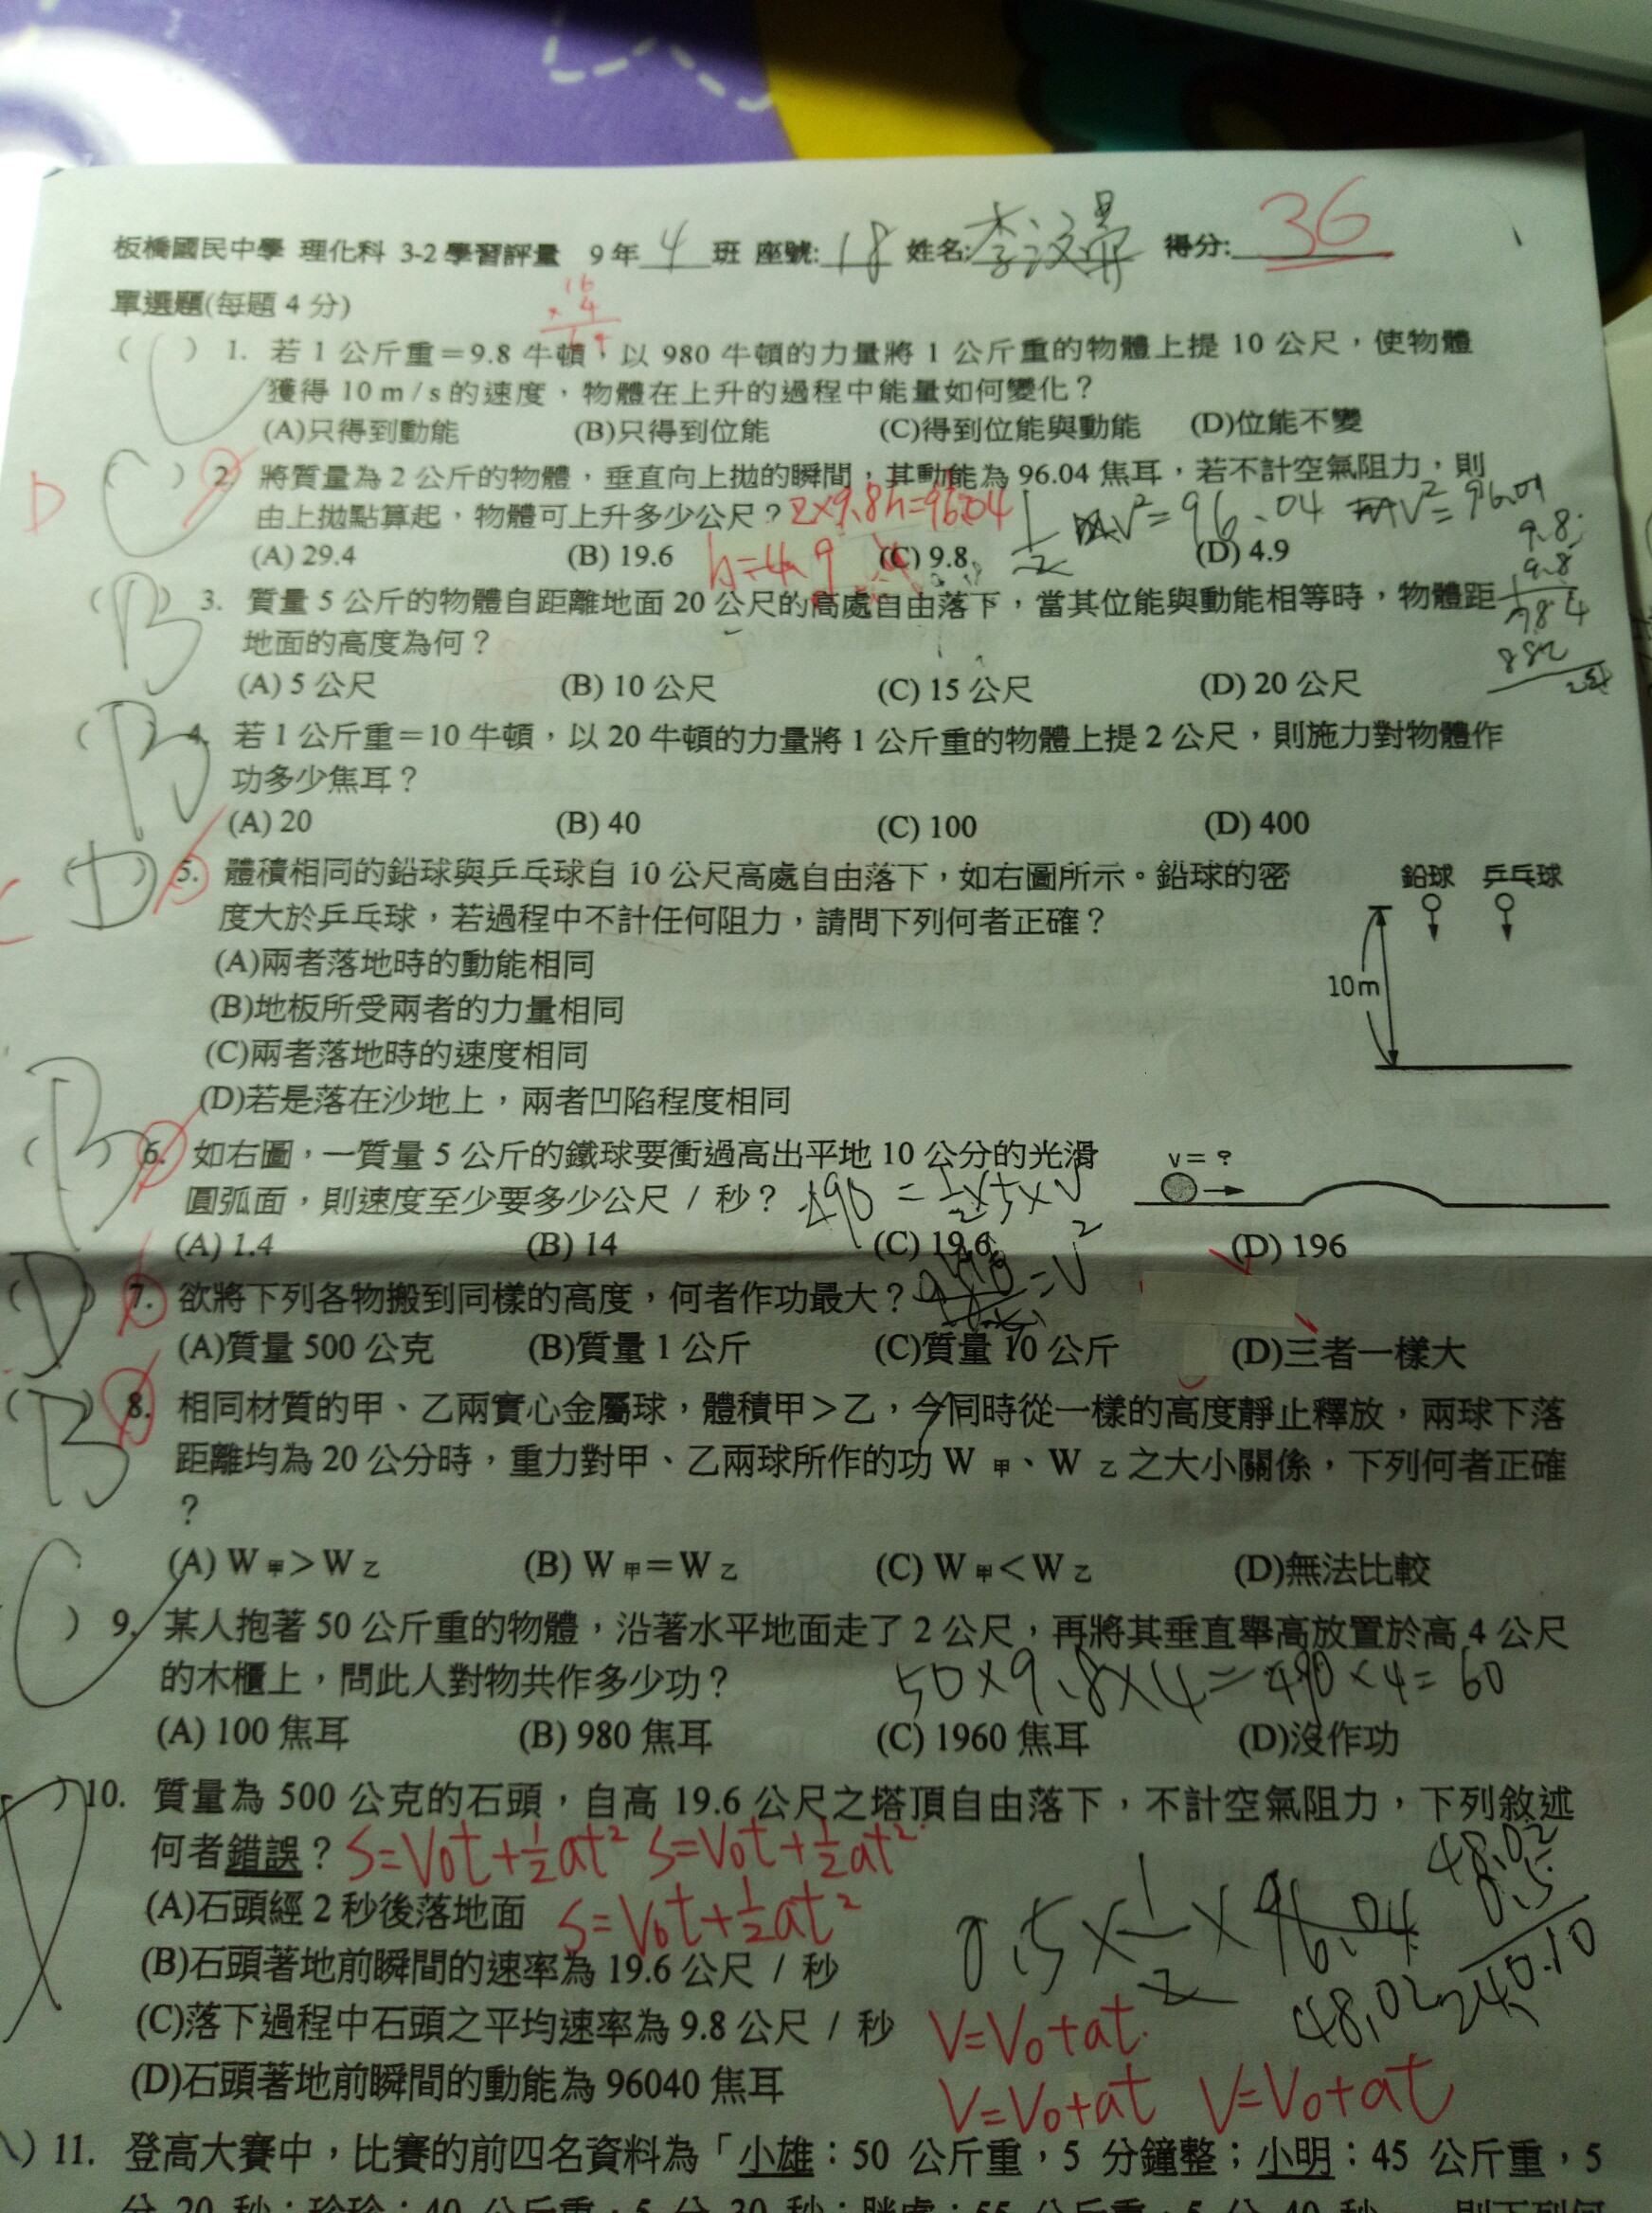 板橋國民中學 理化科 3-2 學習評量 9 年 4 班 座號: 18 姓名: 李 得分: 36
單選題(每題 4 分)
16
× 4
64
( C ) 1. 若 1 公斤重=9.8 牛頓,以 980 牛頓的力量將 1 公斤重的物體上提 10 公尺,使物體
獲得 10 m / s 的速度,物體在上升的過程中能量如何變化?
(A)只得到動能 (B)只得到位能 (C)得到位能與動能 (D)位能不變
D ( C ) 2. 將質量為 2 公斤的物體,垂直向上拋的瞬間,其動能為 96.04 焦耳,若不計空氣阻力,則
由上拋點算起,物體可上升多少公尺? 2×9.8h=96.04 1/2 mv²=96.04 mv²=96.04
(A) 29.4 (B) 19.6 h=4.9 (C) 9.8 (D) 4.9
9.8
9.8
784
882
( B ) 3. 質量 5 公斤的物體自距離地面 20 公尺的高處自由落下,當其位能與動能相等時,物體距
地面的高度為何?
(A) 5 公尺 (B) 10 公尺 (C) 15 公尺 (D) 20 公尺
( B ) 4. 若 1 公斤重=10 牛頓,以 20 牛頓的力量將 1 公斤重的物體上提 2 公尺,則施力對物體作
功多少焦耳?
(A) 20 (B) 40 (C) 100 (D) 400
C ( D ) 5. 體積相同的鉛球與乒乓球自 10 公尺高處自由落下,如右圖所示。鉛球的密
度大於乒乓球,若過程中不計任何阻力,請問下列何者正確?
(A)兩者落地時的動能相同
(B)地板所受兩者的力量相同
(C)兩者落地時的速度相同
(D)若是落在沙地上,兩者凹陷程度相同
鉛球 乒乓球
10m
( B ) 6. 如右圖,一質量 5 公斤的鐵球要衝過高出平地 10 公分的光滑
圓弧面,則速度至少要多少公尺 / 秒? 490 = 1/2×5×V²
v= ?
(A) 1.4 (B) 14 (C) 19.6 (D) 196
( D ) 7. 欲將下列各物搬到同樣的高度,何者作功最大? =V²
(A)質量 500 公克 (B)質量 1 公斤 (C)質量 10 公斤 (D)三者一樣大
( B ) 8. 相同材質的甲、乙兩實心金屬球,體積甲>乙,今同時從一樣的高度靜止釋放,兩球下落
距離均為 20 公分時,重力對甲、乙兩球所作的功 W 甲、W 乙 之大小關係,下列何者正確
?
(A) W 甲>W 乙 (B) W 甲=W 乙 (C) W 甲<W 乙 (D)無法比較
( C ) 9. 某人抱著 50 公斤重的物體,沿著水平地面走了 2 公尺,再將其垂直舉高放置於高 4 公尺
的木櫃上,問此人對物共作多少功? 50×9.8×4=490×4=60
(A) 100 焦耳 (B) 980 焦耳 (C) 1960 焦耳 (D)沒作功
( D ) 10. 質量為 500 公克的石頭,自高 19.6 公尺之塔頂自由落下,不計空氣阻力,下列敘述
何者錯誤? S=V₀t+½at² S=V₀t+½at²
(A)石頭經 2 秒後落地面 S=V₀t+½at²
0.5×1/2×96.04
48.02
0.5
240.10
48.02
(B)石頭著地前瞬間的速率為 19.6 公尺 / 秒
(C)落下過程中石頭之平均速率為 9.8 公尺 / 秒 V=V₀+at
(D)石頭著地前瞬間的動能為 96040 焦耳 V=V₀+at V=V₀+at
) 11. 登高大賽中,比賽的前四名資料為「小雄:50 公斤重,5 分鐘整;小明:45 公斤重,5
分 20 秒;珍珍:40 公斤重,5 分 30 秒;胖虎:55 公斤重,5 分 40 秒